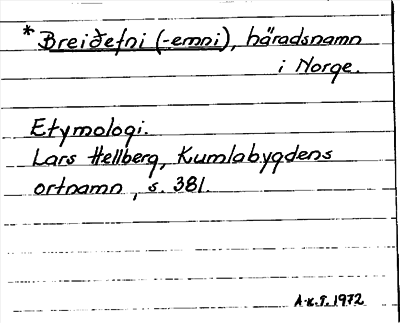 *Breiðefni (-emni), häradsnamn
i Norge.
Etymologi.
Lars Hellberg, Kumlabygdens
ortnamn, s. 381.
A-K.T. 1972